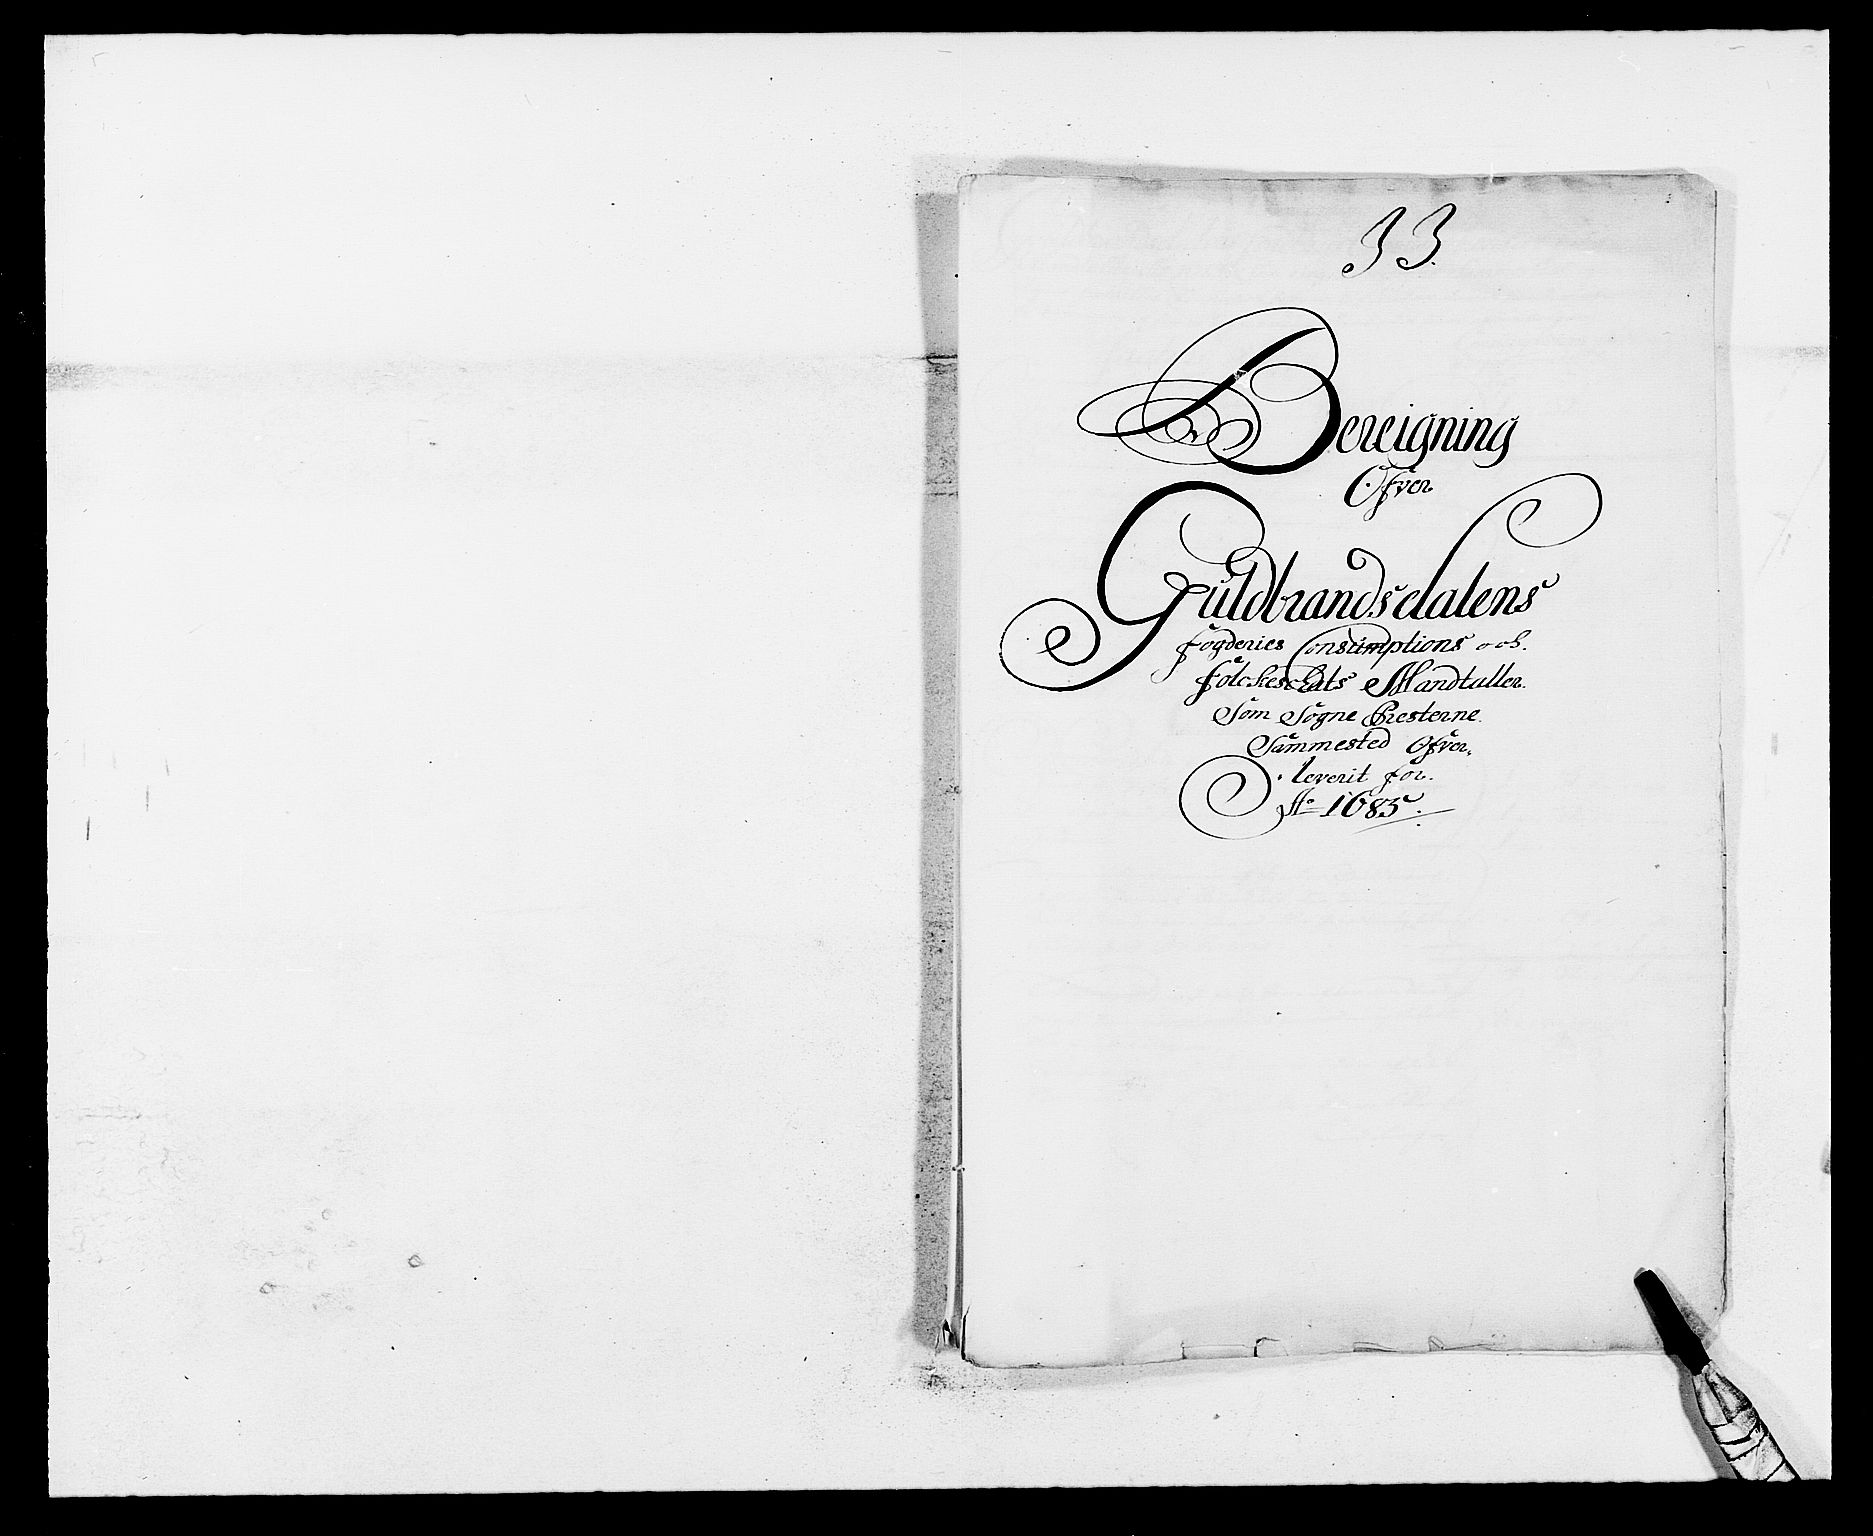 33.
Bereigning
Ofver
Guldbrandsdalens
fogderies Consumptions och
folckeschats Mandtaller
Som Sogne Presterne
Sammested Ofver,
leverit for
Ao 1683.